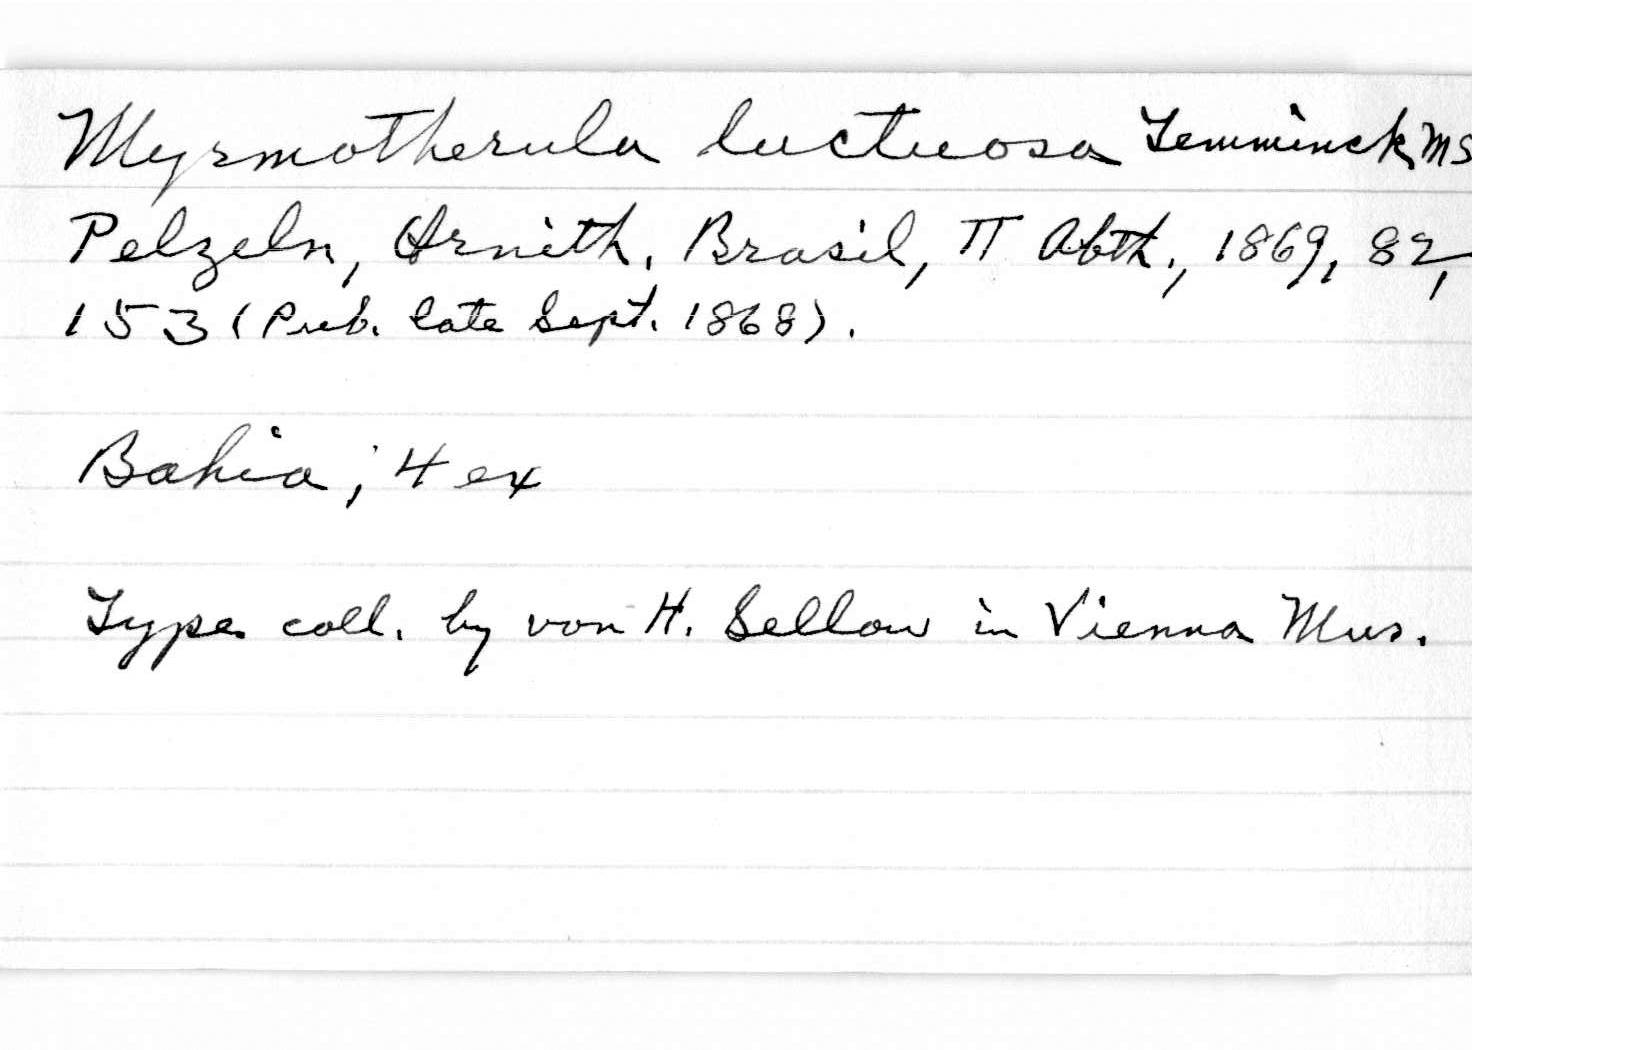 Myrmotherula luctuosa Temminck MS
Pelzeln, Ornith. Brasil, II Abth., 1869, 82,
153 (Pub. late Sept. 1868).
Bahia; 4 ex
Type coll. by von H. Sellow in Vienna Mus.